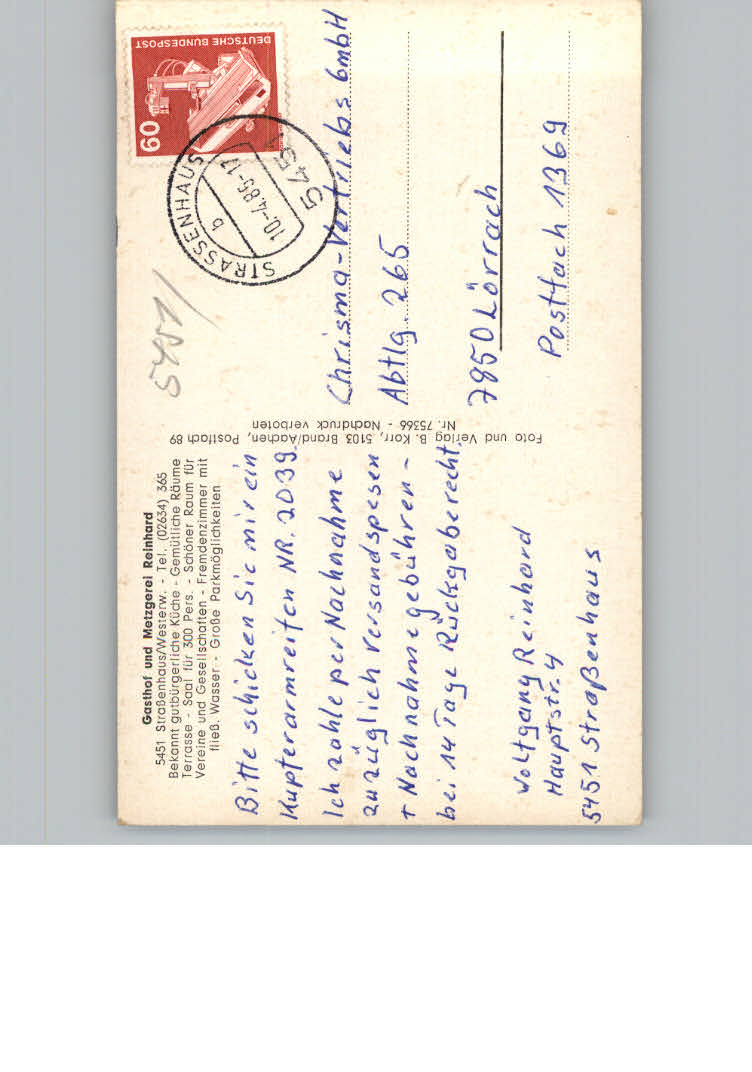 Gasthof und Metzgerei Reinhard
5451 Straßenhaus/Westerw. - Tel. (02634) 365
Bekannt gutbürgerliche Küche - Gemütliche Räume
Terrasse - Saal für 300 Pers. - Schöner Raum für
Vereine und Gesellschaften - Fremdenzimmer mit
fließ. Wasser - Große Parkmöglichkeiten
Bitte schicken Sie mir ein
Kupferarmreifen NR. 2039
Ich zahle per Nachnahme
zuzüglich Versandspesen
+ Nachnahmegebühren -
bei 14 Tage Rückgaberecht.
Wolfgang Reinhard
Hauptstr. 4
5451 Straßenhaus
Foto und Verlag B. Korr, 5103 Brand/Aachen, Postfach 89
Nr. 75366 - Nachdruck verboten
5451/
DEUTSCHE BUNDESPOST
60
STRASSENHAUS
b
10.-4.85-17
5451
Chrisma-Vertriebs GmbH
Abtlg. 265
7850 Lörrach
Postfach 1369